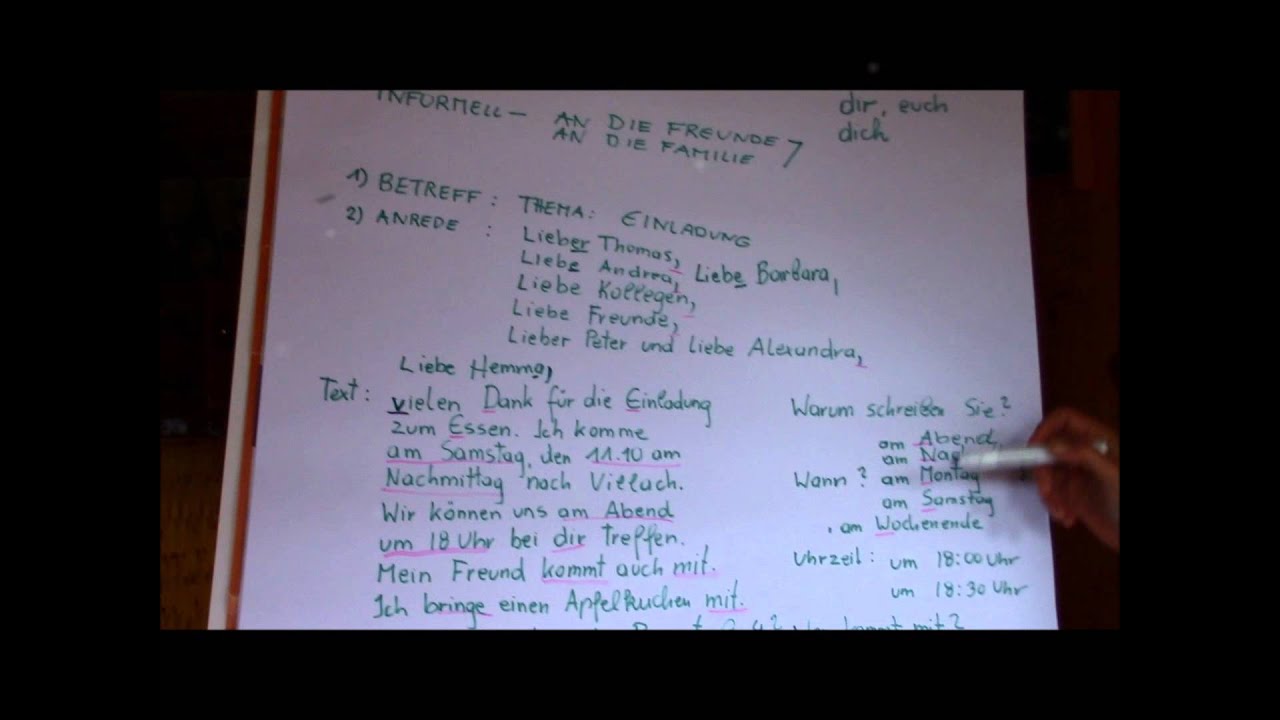 INFORMELL — AN DIE FREUNDE
AN DIE FAMILIE
dir, euch
dich
1) BETREFF : THEMA: EINLADUNG
2) ANREDE : Lieber Thomas,
Liebe Andrea, Liebe Barbara,
Liebe Kollegen,
Liebe Freunde,
Lieber Peter und Liebe Alexandra,
Liebe Hemma,
Text: vielen Dank für die Einladung
zum Essen. Ich komme
am Samstag, den 11.10 am
Nachmittag nach Villach.
Wir können uns am Abend
um 18 Uhr bei dir treffen.
Mein Freund kommt auch mit.
Ich bringe einen Apfelkuchen mit.
Warum schreiben Sie?
am Abend,
am
Wann? am Montag
am Samstag
am Wochenende
Uhrzeit: um 18:00 Uhr
um 18:30 Uhr
kommt mit?